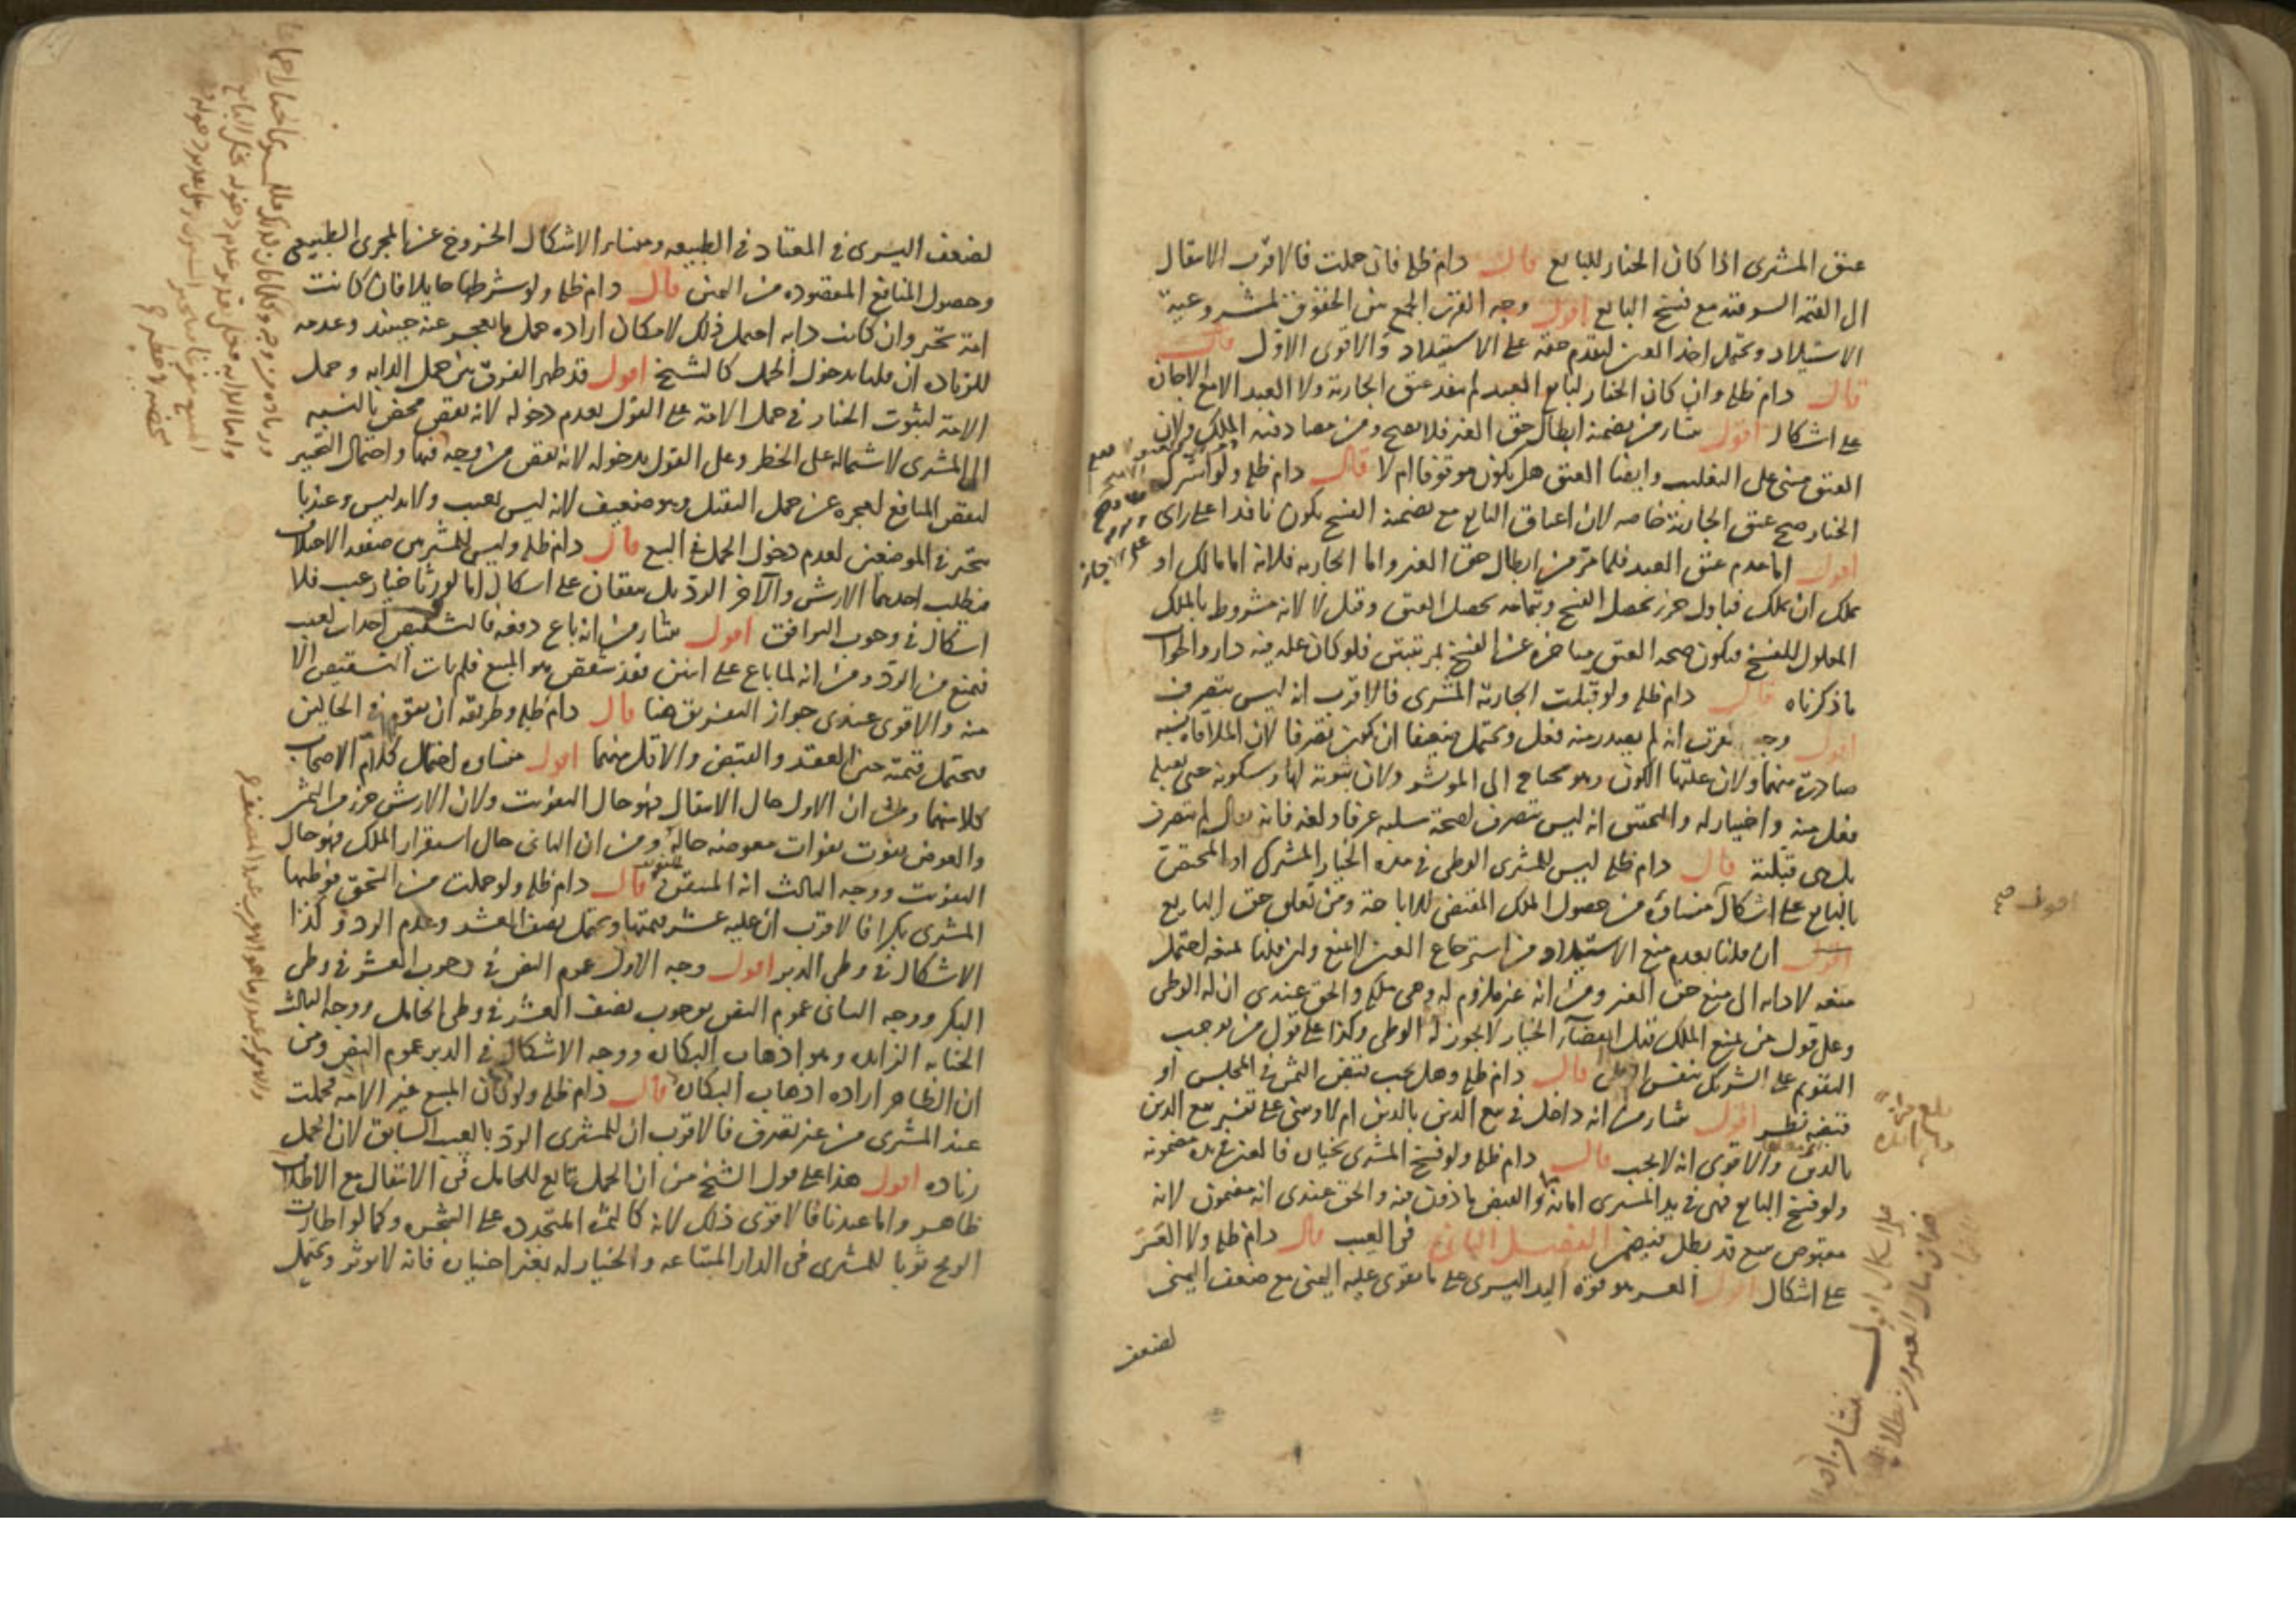 عتق المشترى اذا كان الخيار للبايع قال دام ظله فان حملت فالاقرب الانتقال
الى القيمة السوقية مع فسخ البايع اقول وجه القرب الجمع بين الحقوق لمشروعية
الاستيلاد ويحتمل اخذ العين لتقدم حقه على الاستيلاد والاقوى الاول
قال دام ظله وان كان الخيار لبايع العبد لم ينفذ عتق الجارية ولا العبد الا مع الاجازة
على اشكال اقول ينشأ من تضمنه ابطال حق الغير فلا يصح ومن مصادفته الملك ولان
العتق مبنى على التغليب وايضا العتق هل يكون موقوفا ام لا قال دام ظله ولو اشترك
الخيار صح عتق الجارية خاصة لان اعتاق البايع مع تضمنه الفسخ يكون نافذا على راى
اقول اما عدم عتق العبد فلما مر من ابطال حق الغير واما الجارية فلانه اما مالك او
يملك ان يملك فباول جزء يحصل الفسخ وبتمامه يحصل العتق وقيل لا لانه مشروط بالملك
المعلول للفسخ فيكون صحة العتق متاخرة عن الفسخ بمرتبتين فلو كان علة فيه دار والجواب
ما ذكرناه قال دام ظله ولو قبلت الجارية المشترى فالاقرب انه ليس بتصرف
اقول وجه القرب انه لم يصدر منه فعل ويحتمل ضعيفا ان يكون تصرفا لان الملاقاة نسبة
صادرة منهما ولان علتها الكون وهو محتاج الى الموثر ولان ثبوته لها وسكونه حتى تقبله
فعل منه واختيار له والتحقيق انه ليس بتصرف لصحة سلبه عرفا ولغة فانه يقال لم يتصرف
بل هى قبلته قال دام ظله ليس للمشترى الوطى فى مدة الخيار المشترك او المختص
بالبايع على اشكال منشاؤه من حصول الملك المقتضى للاباحة ومن تعلق حق البايع
اقول ان قلنا بعدم منع الاستيلاد من استرجاع العين لا منع وان قلنا بمنعه احتمل
منعه لادائه الى منع حق الغير ومن انه غير ملزوم له وهى ملكه والحق عندى ان له الوطى
وعلى قول من يمنع الملك قبل انقضاء الخيار لا يجوز له الوطى وكذا على قول من يوجب
التقويم على الشريك بنفس الوطى قال دام ظله وهل يجب تقبض الثمن فى المجلس او
فيه نظر اقول ينشأ من انه داخل فى بيع الدين بالدين ام لا ومبنى على تفسير بيع الدين
بالدين والاقوى انه لا يجب قال دام ظله ولو فسخ المشترى بخياره فالعين فى يده مضمونة
ولو فسخ البايع فهى فى يد المشترى امانة والقبض ماذون فيه والحق عندى انه مضمون لانه
مقبوض ببيع قد بطل فيضمن الفصل الثانى فى العيب قال دام ظله ولا العَسَر
على اشكال اقول العسر هو قوة اليد اليسرى على ما يقوى عليه اليمنى مع ضعف اليمنى
لضعف
اقول صح
لضعف اليسرى فى المعتاد فى الطبيعه ومنشاء الاشكال الخروج عن المجرى الطبيعى
وحصول المنافع المقصودة من العين قال دام ظله ولو شرطها حايلا فان كانت
امة تخير وان كانت دابه احتمل ذلك لامكان ارادة حمل ما يعجز عنه حينئذ وعدمه
للزيادة ان قلنا بدخول الحمل كالشيخ اقول قد ظهر الفرق بين حمل الدابه وحمل
الامة لثبوت الخيار فى حمل الامة على القول بعدم دخوله لانه نقص محض بالنسبه
الى المشترى لاشتماله على الخطر وعلى القول بدخوله لانه نقص من وجه فيها واحتمال التخيير
لنقص المنافع لعجزه عن حمل الثقيل وهو ضعيف لانه ليس بعيب ولا تدليس وعندنا
يتخير فى الموضعين لعدم دخول الحمل فى البيع قال دام ظله وليس للمشتريين صفقة الاختلاف
فيطلب احدهما الارش والآخر الرد بل يتفقان على اشكال اما لو ورثا خيار عيب فلا
اشكال فى وجوب التوافق اقول ينشأ من انه باع دفعة فالتشقيص احداث لعيب
فيمنع من الرد ومن انه لما باع على اثنين فقد تشقص هو المبيع فلم يات التشقيص الا
منه والاقوى عندى جواز التفريق هنا قال دام ظله وطريقه ان يقوم فى الحالين
فيحتمل قيمته حين العقد والقبض والاقل منهما اقول منشاوه احتمال كلام الاصحاب
كلا منهما ومن ان الاول حال الانتقال فهو حال التفويت ولان الارش جزء من الثمن
والعوض يفوت بفوات معوضه حاله ومن ان الثانى حال استقرار الملك فهو حال
التفويت ووجه الثالث انه المتيقن قال دام ظله ولو حملت من السحق فوطئها
المشترى بكرا فالاقرب ان عليه عشر قيمتها ويحتمل نصف العشر وعدم الرد وكذا
الاشكال فى وطى الدبر اقول وجه الاول عموم النص فى وجوب العشر فى وطى
البكر ووجه الثانى عموم النص بوجوب نصف العشر فى وطى الحامل ووجه الثالث
الجناية الزايدة وهو اذهاب البكارة ووجه الاشكال فى الدبر عموم النص ومن
ان الظاهر ارادة اذهاب البكارة قال دام ظله ولو كان المبيع غير الامه فحملت
عند المشترى من غير تصرف فالاقرب ان للمشترى الرد بالعيب السابق لان الحمل
زيادة اقول هذا على قول الشيخ من ان الحمل تابع للحامل فى الانتقال مع الاطلاق
ظاهر واما عندنا فالاقوى ذلك لانه كالثمرة المتجددة على الشجر وكما لو اطارت
الريح ثوبا للمشترى فى الدار المبتاعه والخيار له بغير اختياره فانه لا يوثر ويحتمل